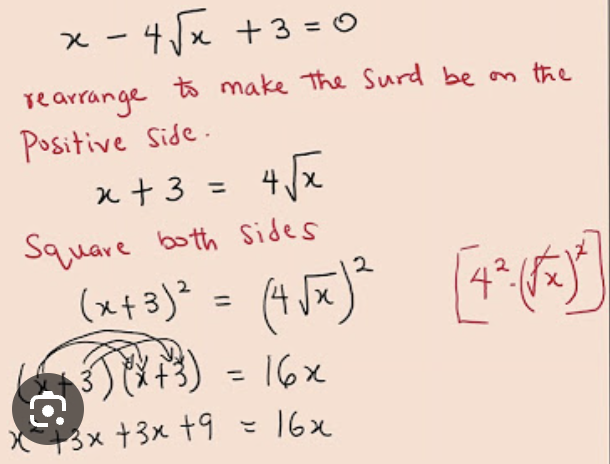 x - 4√x + 3 = 0
rearrange to make the surd be on the
Positive side.
x + 3 = 4√x
Square both sides
(x+3)² = (4√x)² [4²·(√x)²]
(x+3)(x+3) = 16x
x² +3x +3x +9 = 16x